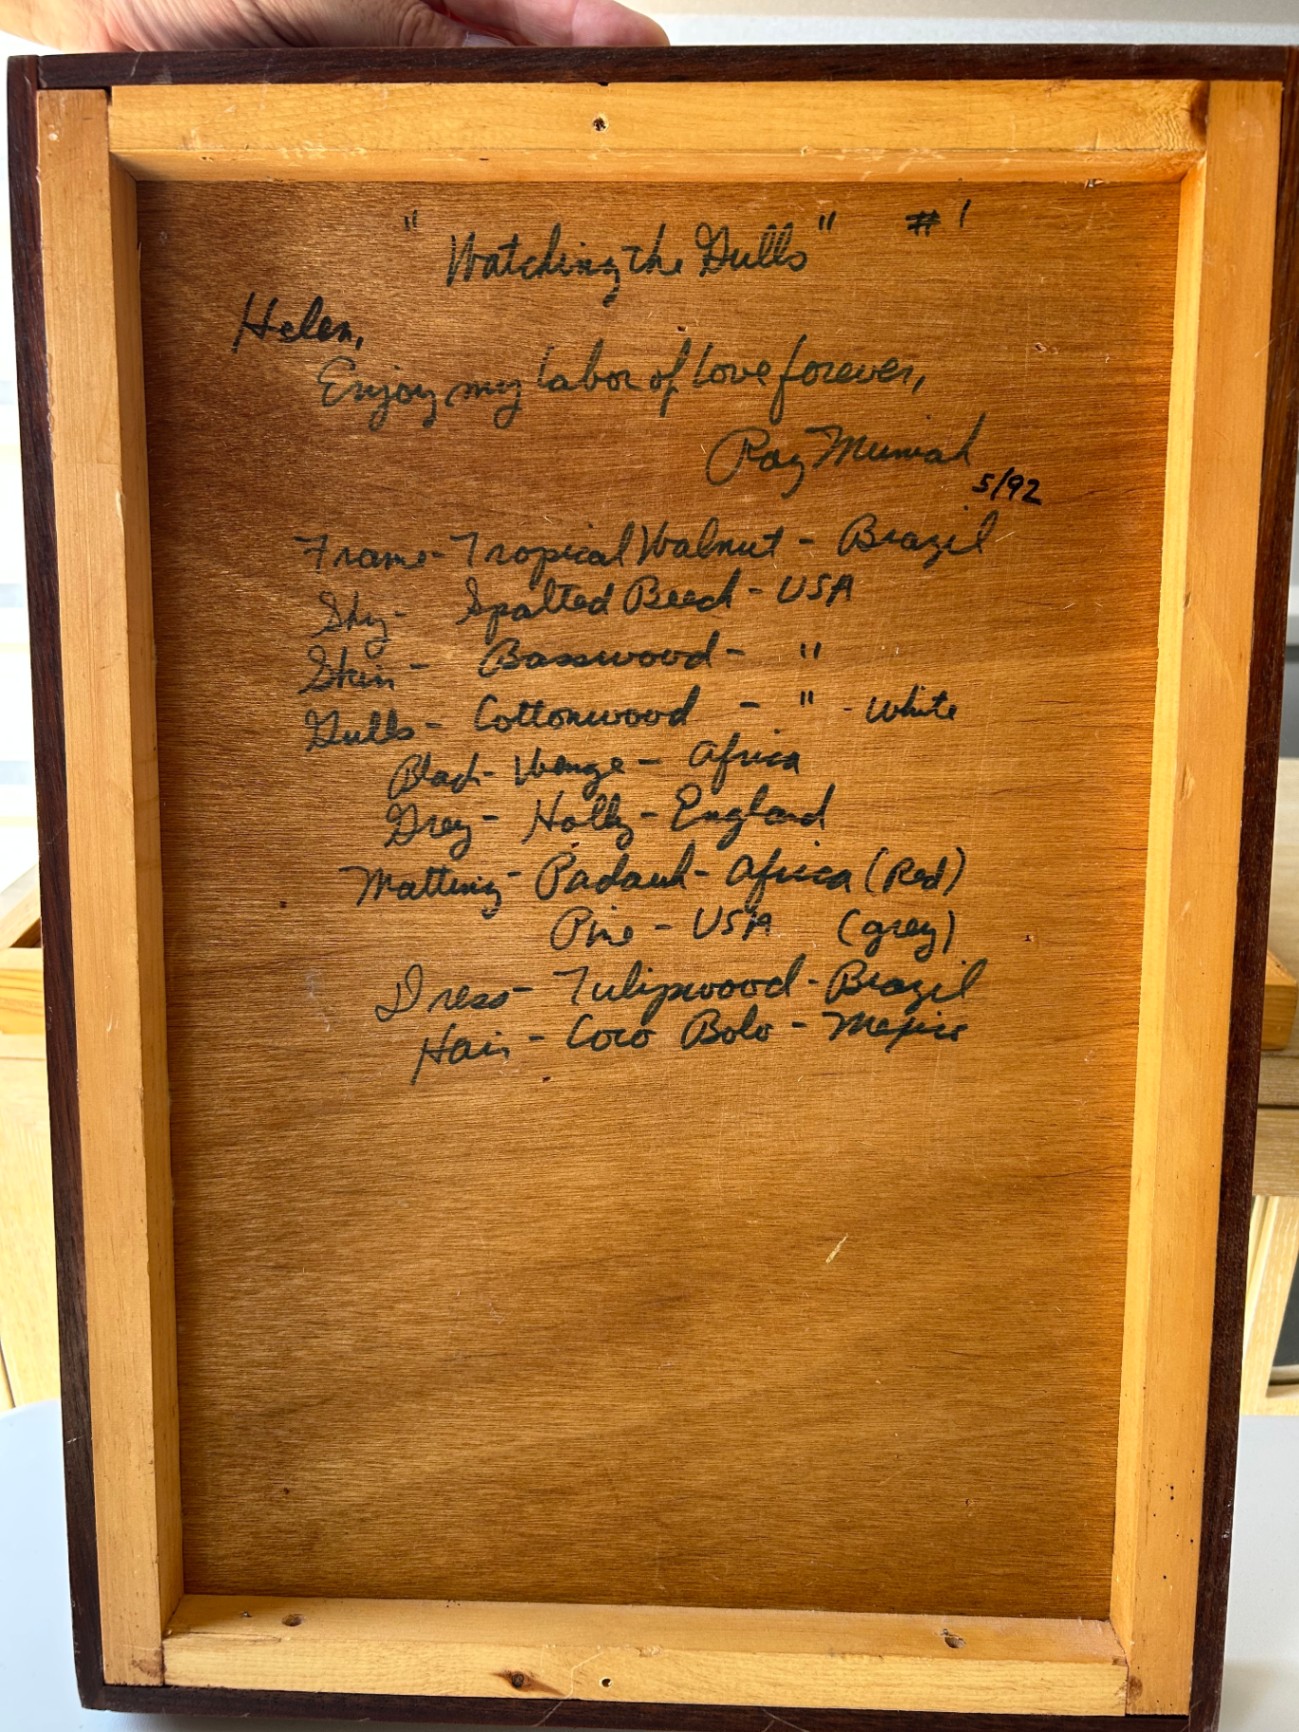 "Watching the Gulls" #1
Helen,
Enjoy my labor of love forever,
Ray
5/92
Frame - Tropical Walnut - Brazil
Sky - Spalted Beech - USA
Skin - Basswood - "
Gulls - Cottonwood - " - White
Black - Wenge - Africa
Grey - Holly - England
Matting - Padauk - Africa (Red)
Pine - USA (grey)
Dress - Tulipwood - Brazil
Hair - Coco Bolo - Mexico